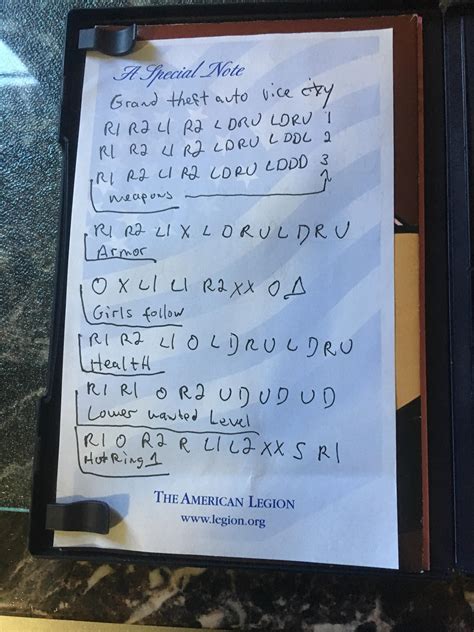 A Special Note
Grand theft auto vice city
R1 R2 L1 R2 L D R U L D R U 1
R1 R2 L1 R2 L D R U L D D L 2
R1 R2 L1 R2 L D R U L D D D 3
weapons
R1 R2 L1 X L D R U L D R U
Armor
O X L1 L1 R2 X X O △
Girls follow
R1 R2 L1 O L D R U L D R U
Health
R1 R1 O R2 U D U D U D
Lower wanted Level
R1 O R2 R L1 L2 X X S R1
HotRing 1
THE AMERICAN LEGION
www.legion.org